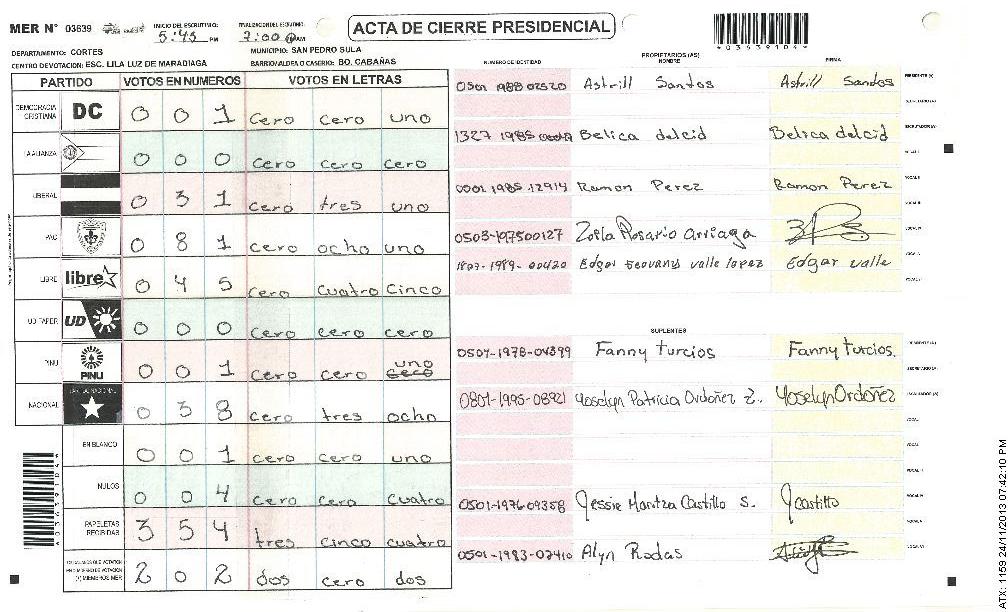 MER N° 03639
INICIO DEL ESCRUTINIO: 5:45 PM
FINALIZACION DEL ESCRUTINIO: 7:00
ACTA DE CIERRE PRESIDENCIAL
*03639104*
DEPARTAMENTO: CORTES
MUNICIPIO: SAN PEDRO SULA
CENTRO DE VOTACION: ESC. LILA LUZ DE MARADIAGA
BARRIO/ALDEA O CASERIO: BO. CABAÑAS
PARTIDO VOTOS EN NUMEROS VOTOS EN LETRAS
DEMOCRACIA CRISTIANA DC 0 0 1 cero cero uno
LA ALIANZA 0 0 0 cero cero cero
LIBERAL 0 3 1 cero tres uno
PAC 0 8 1 cero ocho uno
LIBRE libre 0 4 5 cero cuatro cinco
UD FAPER UD 0 0 0 cero cero cero
PINU PINU 0 0 1 cero cero uno
NACIONAL 0 3 8 cero tres ocho
EN BLANCO 0 0 1 cero cero uno
NULOS 0 0 4 cero cero cuatro
PAPELETAS RECIBIDAS 3 5 4 tres cinco cuatro
2 0 2 dos cero dos
PROPIETARIOS (AS)
NUMERO DE IDENTIDAD NOMBRE FIRMA
0501 1988 02520 Astrill Santos Astrill Santos
1327 1985 Belica delcid Belica delcid
0501 1985 12914 Ramon Perez Ramon Perez
0503-197500127 Zoila Rosario Arriaga
1807-1989-00420 Edgar Geovany valle lopez Edgar valle
SUPLENTES
0504-1978-04399 Fanny turcios Fanny turcios.
0801-1995-08921 Yoselyn Patricia Ordoñez Z. Yoselyn Ordoñez
0501-1976 09358 Jessie Maritza Castillo S. JCastillo
0501-1983-02410 Alyn Rodas
ATX: 1159 24/11/2013 07:42:10 PM